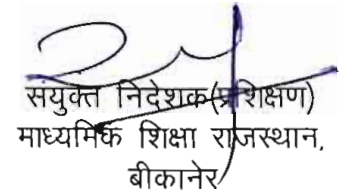 सयुक्त निदेशक(प्रशिक्षण)
माध्यमिक शिक्षा राजस्थान,
बीकानेर